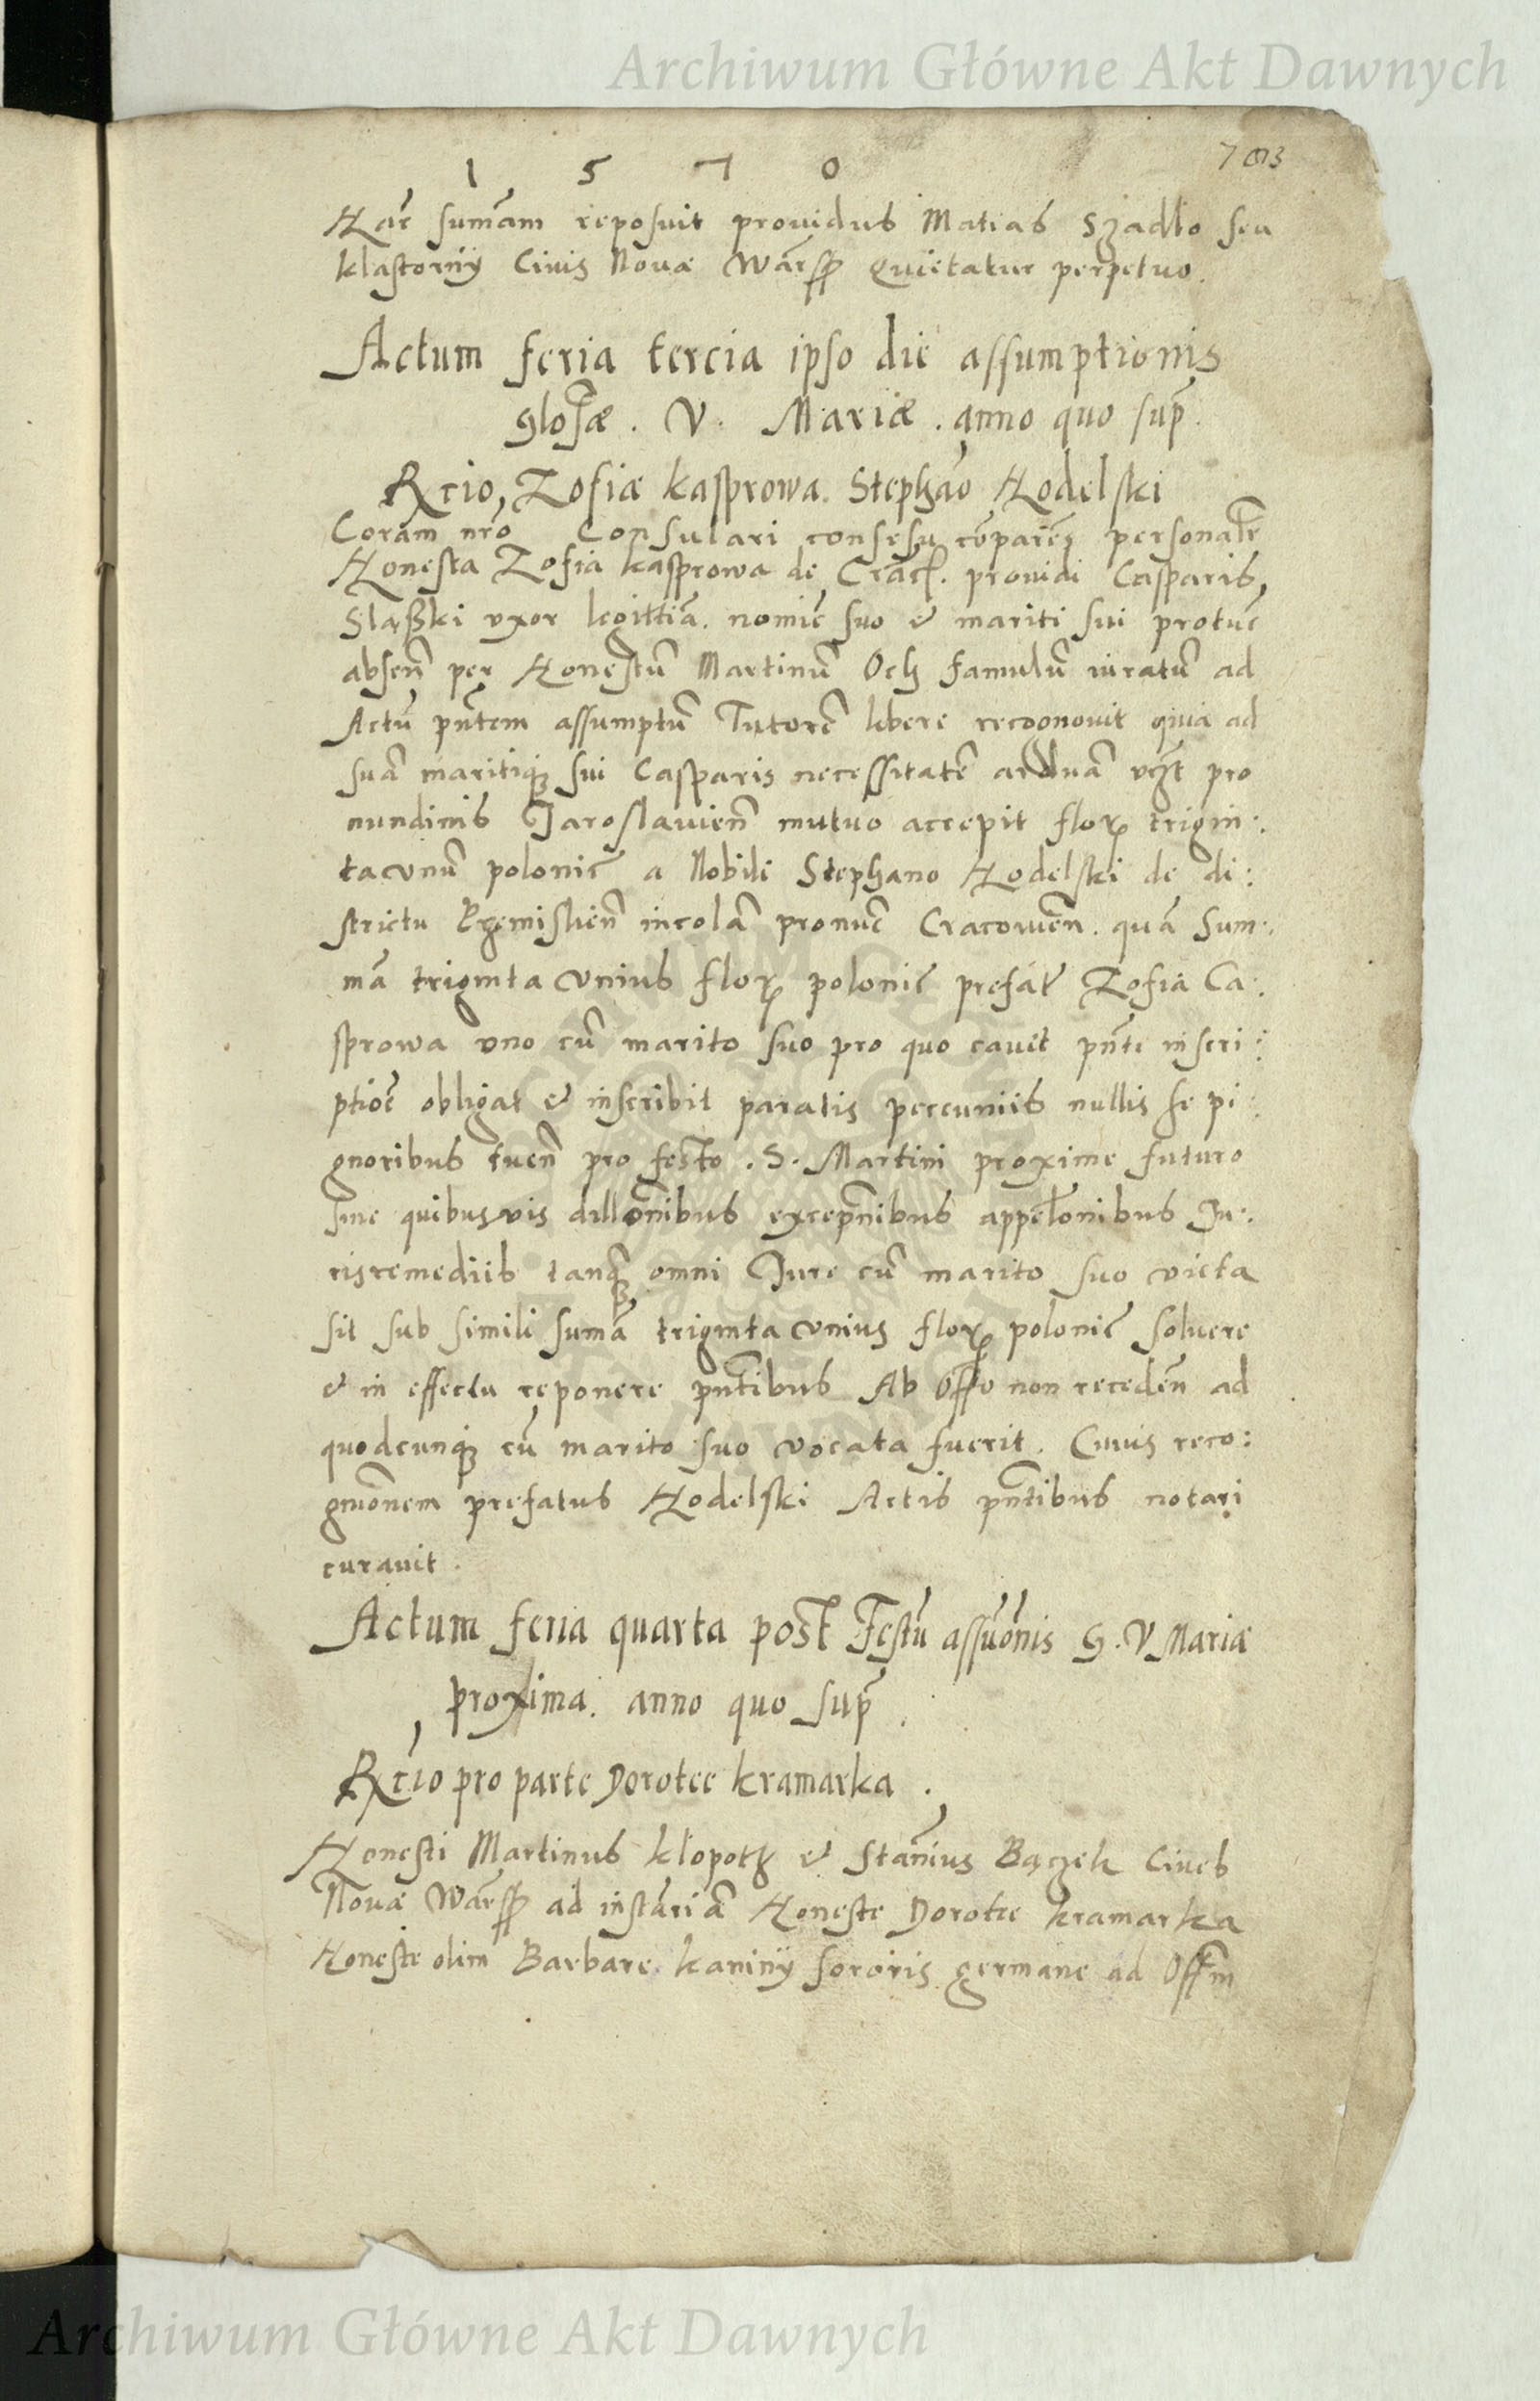 Archiwum Główne Akt Dawnych
1 5 7 0
Hāc sum̄am reposuit prouidus Matias Szadlo seu
klastorny Ciuis Nouæ Warsz Quietatur perpetuo.
Actum feria tercia ipso die assumptionis
glosæ . V . Mariæ . anno quo sup̄
Rcio, Zofiæ kasprowa. Stephāo Hodelski
Coram nrō Consulari consesu cōparēs personalr̄
Honesta Zofia kasprowa de Crac. prouidi Casparis
Sląski vxor legittīa. nomīe suo & mariti sui protūc
absen̄ per Honestū Martinū Och famulū iuratū ad
Actū pn̄tem assumptū Tutorē libere recognouit quia ad
suā maritiq; sui Casparis necessitatē arduā vcz̄t pro
nundinis Jaroslauien̄ mutuo accepit flor trigin:
ta vnū polonic̄ a Nobili Stephano Hodelski de di:
strictu Przemislien̄ incolā pronūc Cracouien̄. quā Sum:
mā triginta vnius flor polonic̄ prefat̄ Zofia Ca:
sprowa vno cū marito suo pro quo cauet pn̄te inscri:
ptiōe obligat & inscribit paratis peccuniis nullis se pi:
gnoribus tuen̄ pro festo . S. Martini proxime futuro
sine quibusvis dillōnibus excepn̄ibus appellōnibus Ju:
risremediis tanq omni Jure cū marito suo victa
sit sub simili sumā triginta vnius flor polonic̄ soluere
& in effectu reponere pn̄tibus Ab offo non receden̄ ad
quodcunq; cū marito suo vocata fuerit. Cuius reco:
gniōnem prefatus Hodelski Actis pn̄tibus notari
curauit .
Actum feria quarta post Festū assuōnis S. V Mariæ
proxima. anno quo sup̄ .
Rcio pro parte Dorotee kramarka .
Honesti Martinus klopotz & Stanius Bączek Ciues
Nouæ Warsz ad instāriā Honeste Dorotee kramarka
Honeste olim Barbare kaniny sororis germane ad Off̄m
Archiwum Główne Akt Dawnych